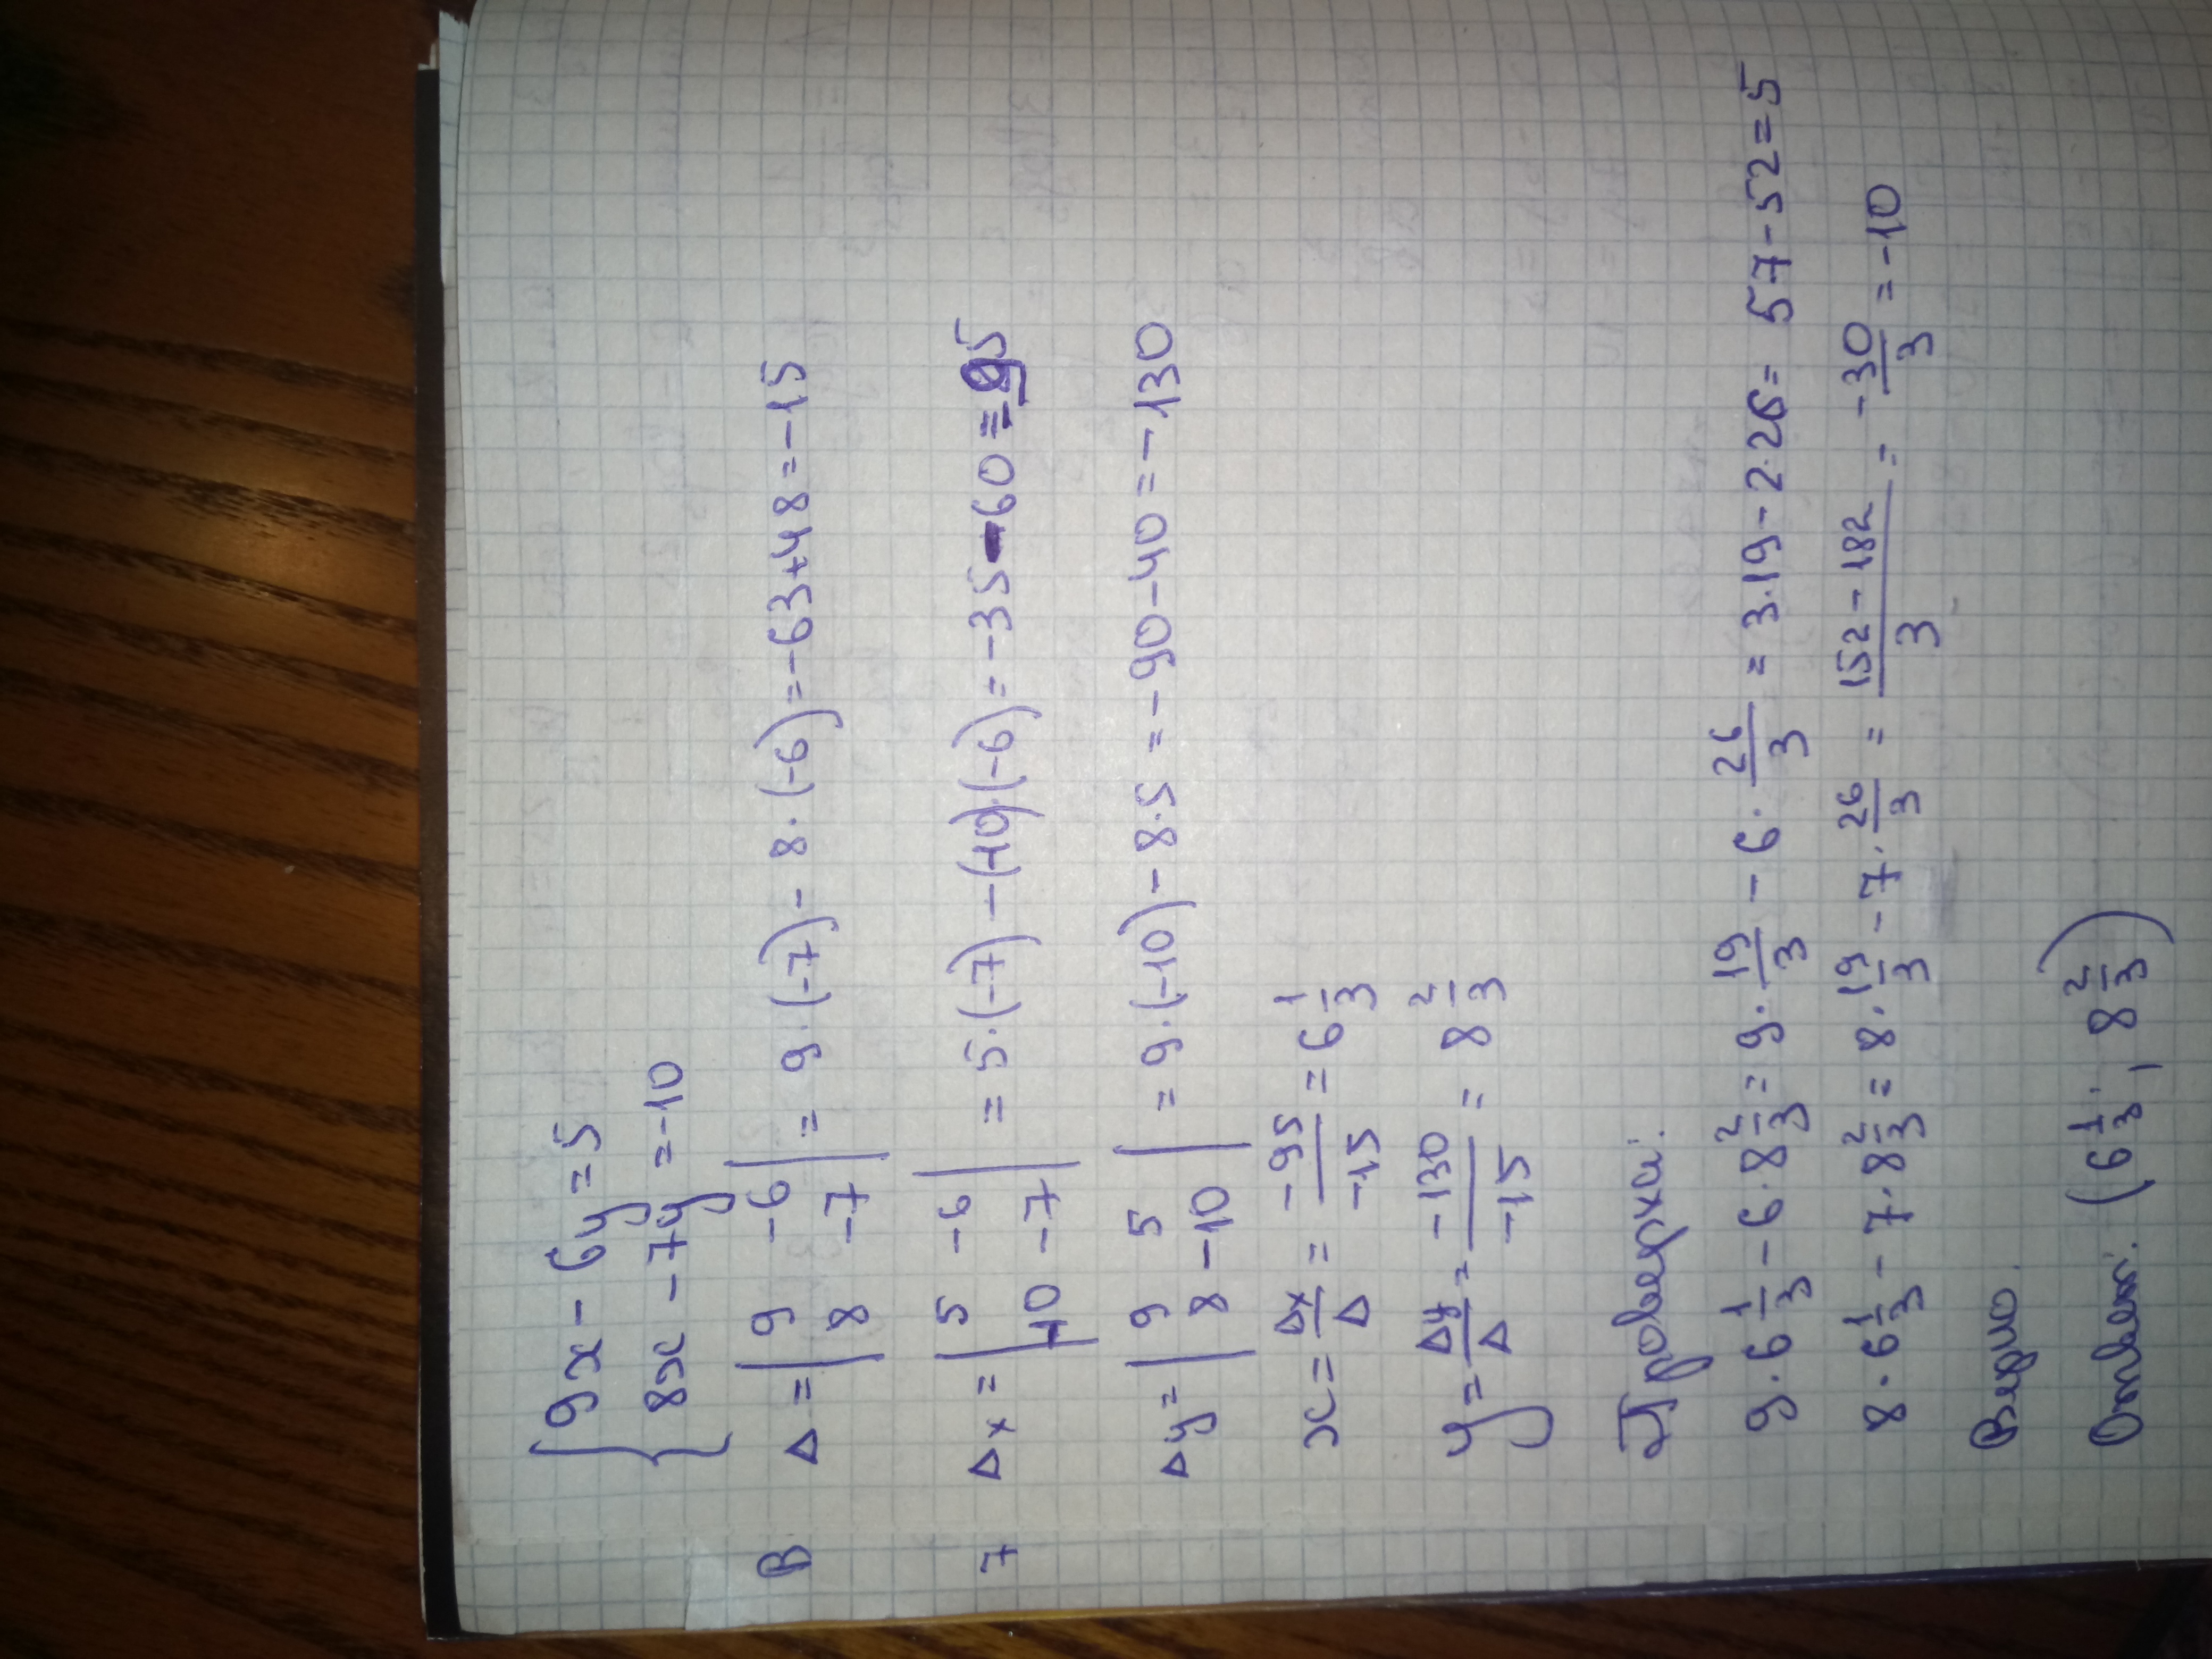 9x - 6y = 5
8x - 7y = -10
В Δ = |9 -6; 8 -7| = 9·(-7) - 8·(-6) = -63+48 = -15
7 Δx = |5 -6; -10 -7| = 5·(-7) - (-10)·(-6) = -35-60 = -95
Δy = |9 5; 8 -10| = 9·(-10) - 8·5 = -90-40 = -130
x = Δx/Δ = -95/-15 = 6 1/3
y = Δy/Δ = -130/-15 = 8 2/3
Проверка:
9·6 1/3 - 6·8 2/3 = 9·19/3 - 6·26/3 = 3·19 - 2·26 = 57-52 = 5
8·6 1/3 - 7·8 2/3 = 8·19/3 - 7·26/3 = (152-182)/3 = -30/3 = -10
Верно.
Ответ: (6 1/3; 8 2/3)